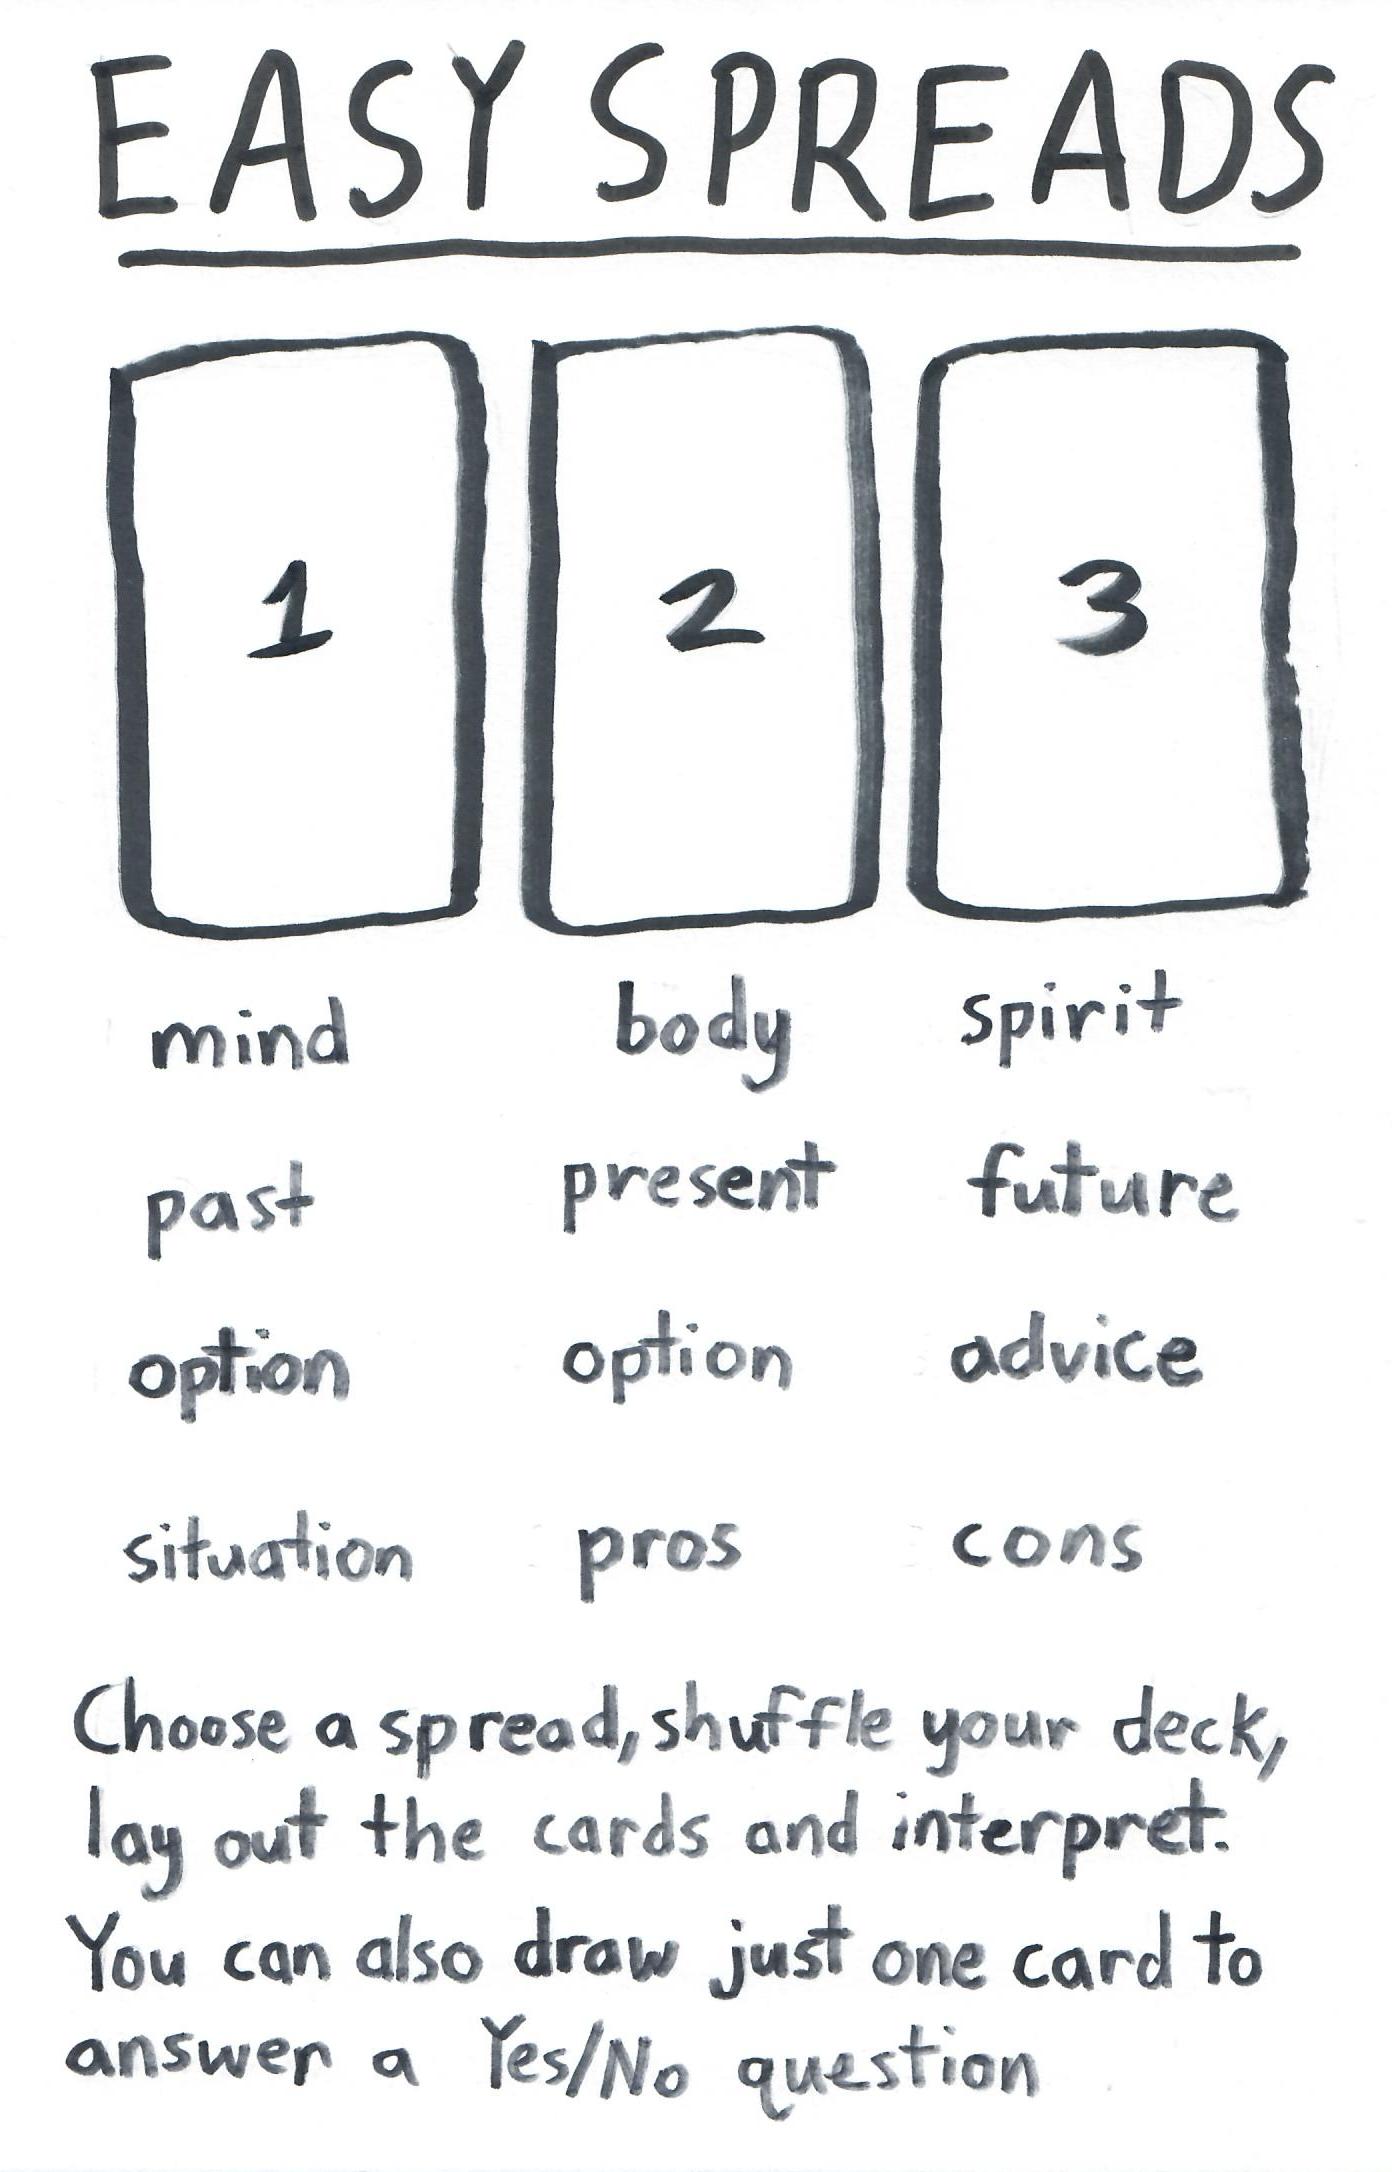 EASY SPREADS
1 2 3
mind body spirit
past present future
option option advice
situation pros cons
Choose a spread, shuffle your deck,
lay out the cards and interpret.
You can also draw just one card to
answer a Yes/No question